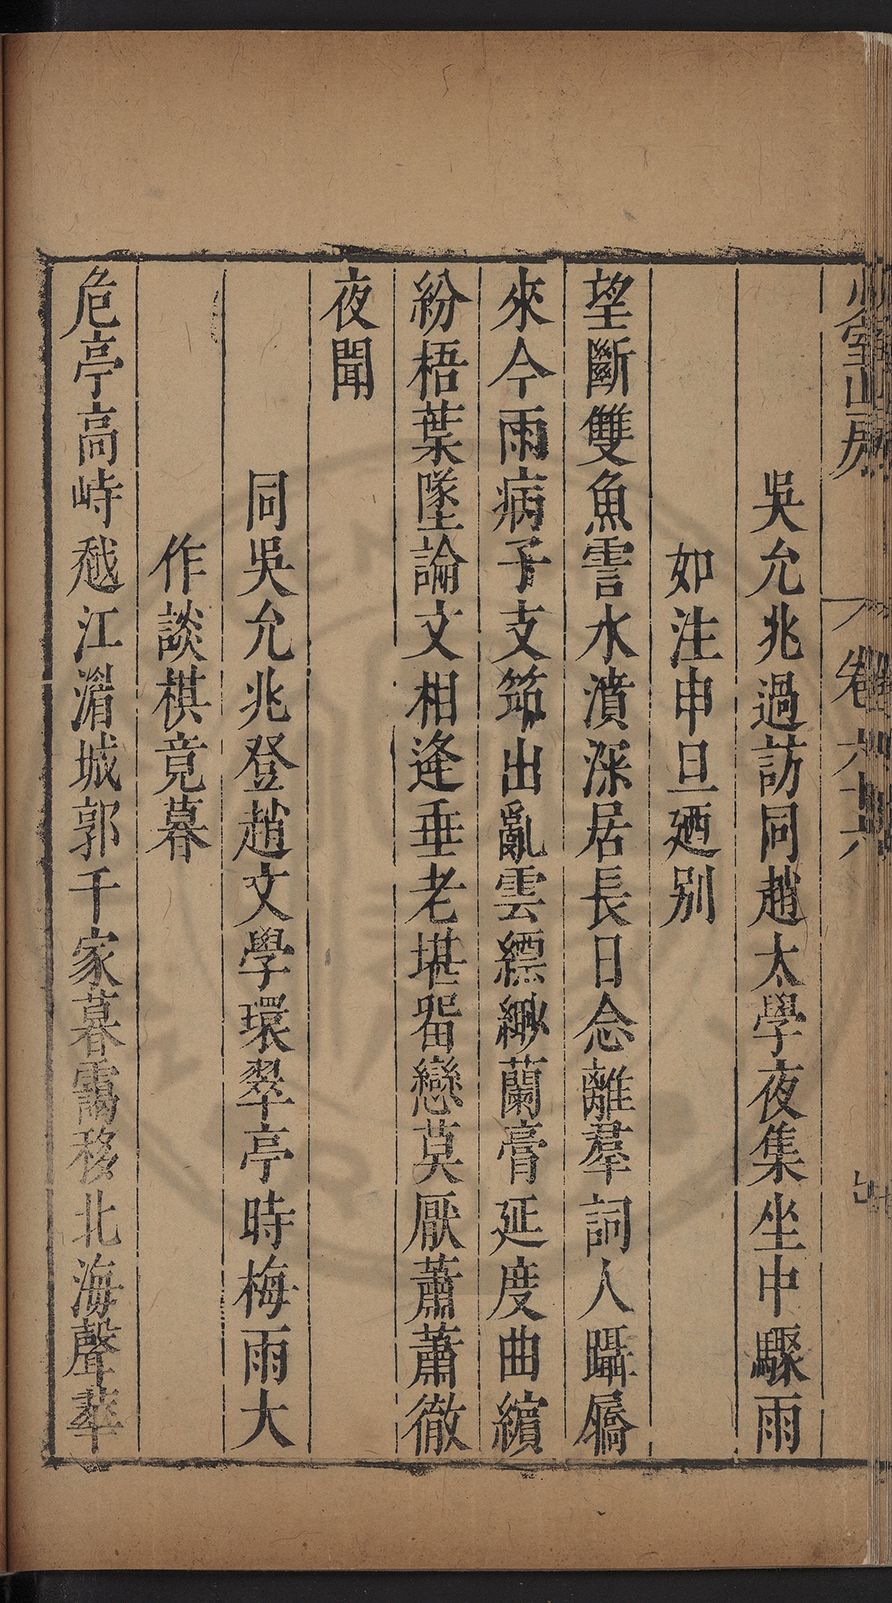 少室山房
卷六十六
吳允兆過訪同趙太學夜集坐中驟雨
如注申旦廼別
望斷雙魚霅水濆深居長日念離羣詞人躡屩
來今雨病子支筇出亂雲縹緲蘭膏延度曲繽
紛梧葉墜論文相逢垂老堪畱戀莫厭蕭蕭徹
夜聞
同吳允兆登趙文學環翠亭時梅雨大
作談棋竟暮
危亭高峙瀫江湄城郭千家暮靄移北海聲華